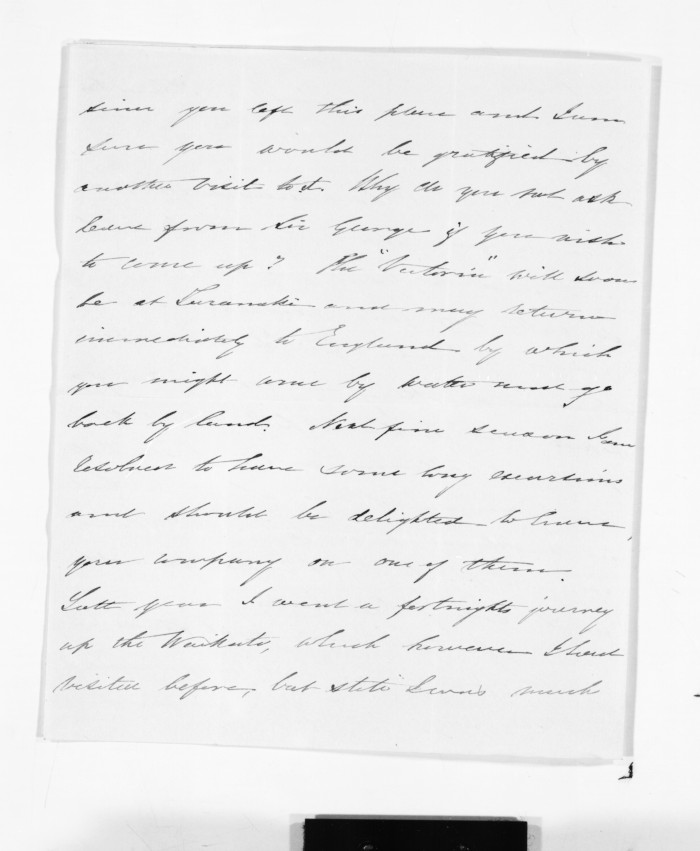 since you left this place and I am
sure you would be gratified by
another visit to it. Why do you not ask
leave from Sir George if you wish
to come up? The "Victoria" will soon
be at Taranaki and may return
immediately to England by which
you might come by water and go
back by land. Next fine season I am
resolved to have some long excursions
and should be delighted to have
your company on one of them.
Last year I went a fortnights journey
up the Waikato, which however I had
visited before, but still I was much